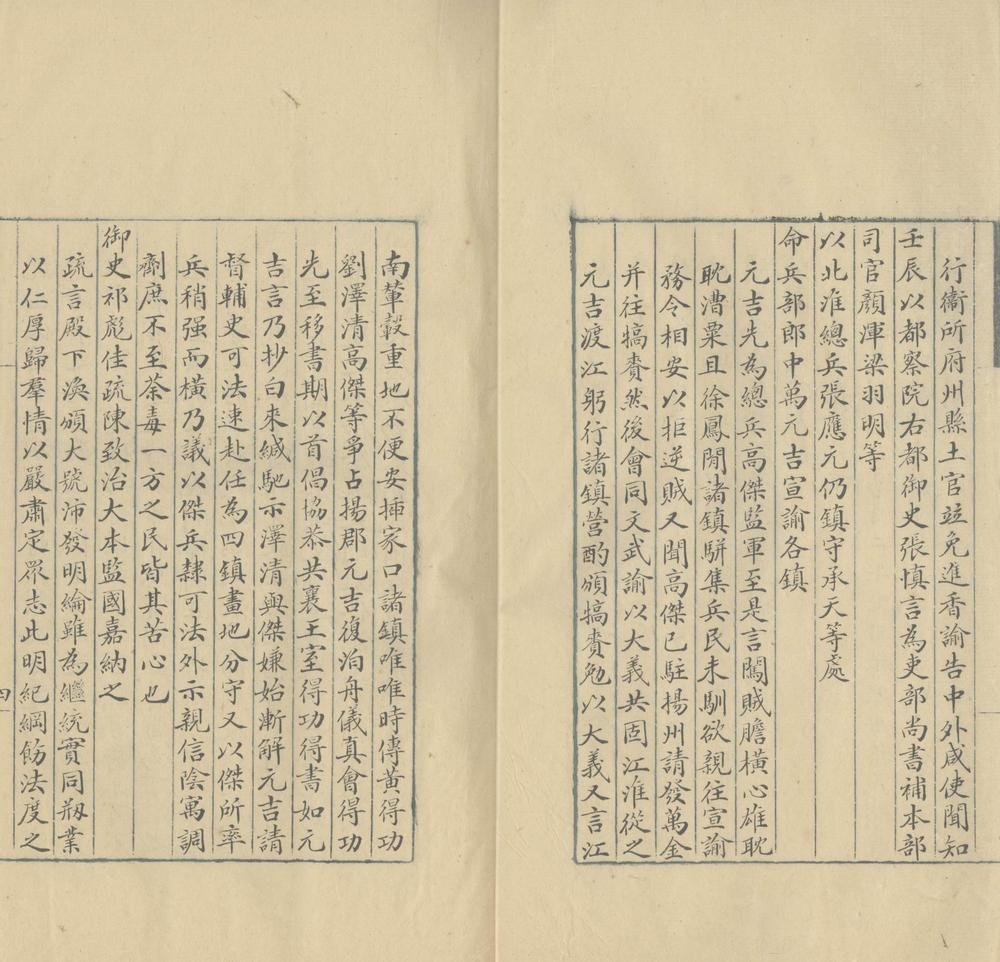 行衞所府州縣土官並免進香諭告中外咸使聞知
壬辰以都察院右都御史張慎言為吏部尚書補本部
司官顏渾梁羽明等
以北淮總兵張應元仍鎮守承天等處
命兵部郎中萬元吉宣諭各鎮
元吉先為總兵高傑監軍至是言闖賊膽橫心雄眈
眈漕粟且徐鳳閒諸鎮駢集兵民未馴欲親往宣諭
務令相安以拒逆賊又聞高傑已駐揚州請發萬金
并往犒賚然後會同文武諭以大義共固江淮從之
元吉渡江躬行諸鎮營酌頒犒賚勉以大義又言江
南輦轂重地不便安揷家口諸鎮唯唯時傳黃得功
劉澤清高傑等爭占揚郡元吉復泊舟儀真會得功
先至移書期以首倡協恭共襄王室得功得書如元
吉言乃抄白來緘馳示澤清與傑嫌始漸解元吉請
督輔史可法速赴任為四鎮畫地分守又以傑所率
兵稍强而橫乃議以傑兵隸可法外示親信陰寓調
劑庶不至荼毒一方之民皆其苦心也
御史祁彪佳疏陳致治大本監國嘉納之
疏言殿下渙頒大號沛發明綸雖為繼統實同剏業
以仁厚歸羣情以嚴肅定眾志此明紀綱飭法度之
四